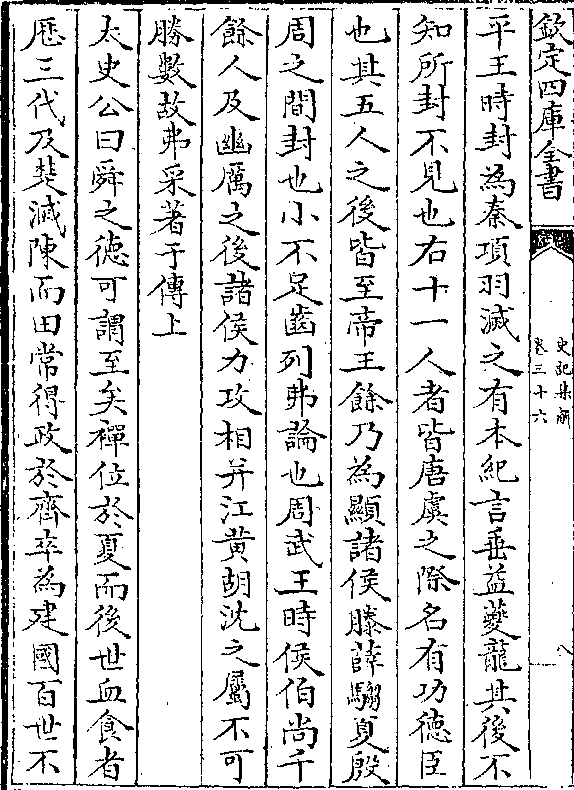 欽定四庫全書
史記集解
卷三十六
八
平王時封為秦項羽滅之有本紀言垂益夔龍其後不
知所封不見也右十一人者皆唐虞之際名有功德臣
也其五人之後皆至帝王餘乃為顯諸侯滕薛騶夏殷
周之間封也小不足齒列弗論也周武王時侯伯尚千
餘人及幽厲之後諸侯力攻相并江黃胡沈之屬不可
勝數故弗采著于傳上
太史公曰舜之德可謂至矣禪位於夏而後世血食者
歷三代及楚滅陳而田常得政於齊卒為建國百世不